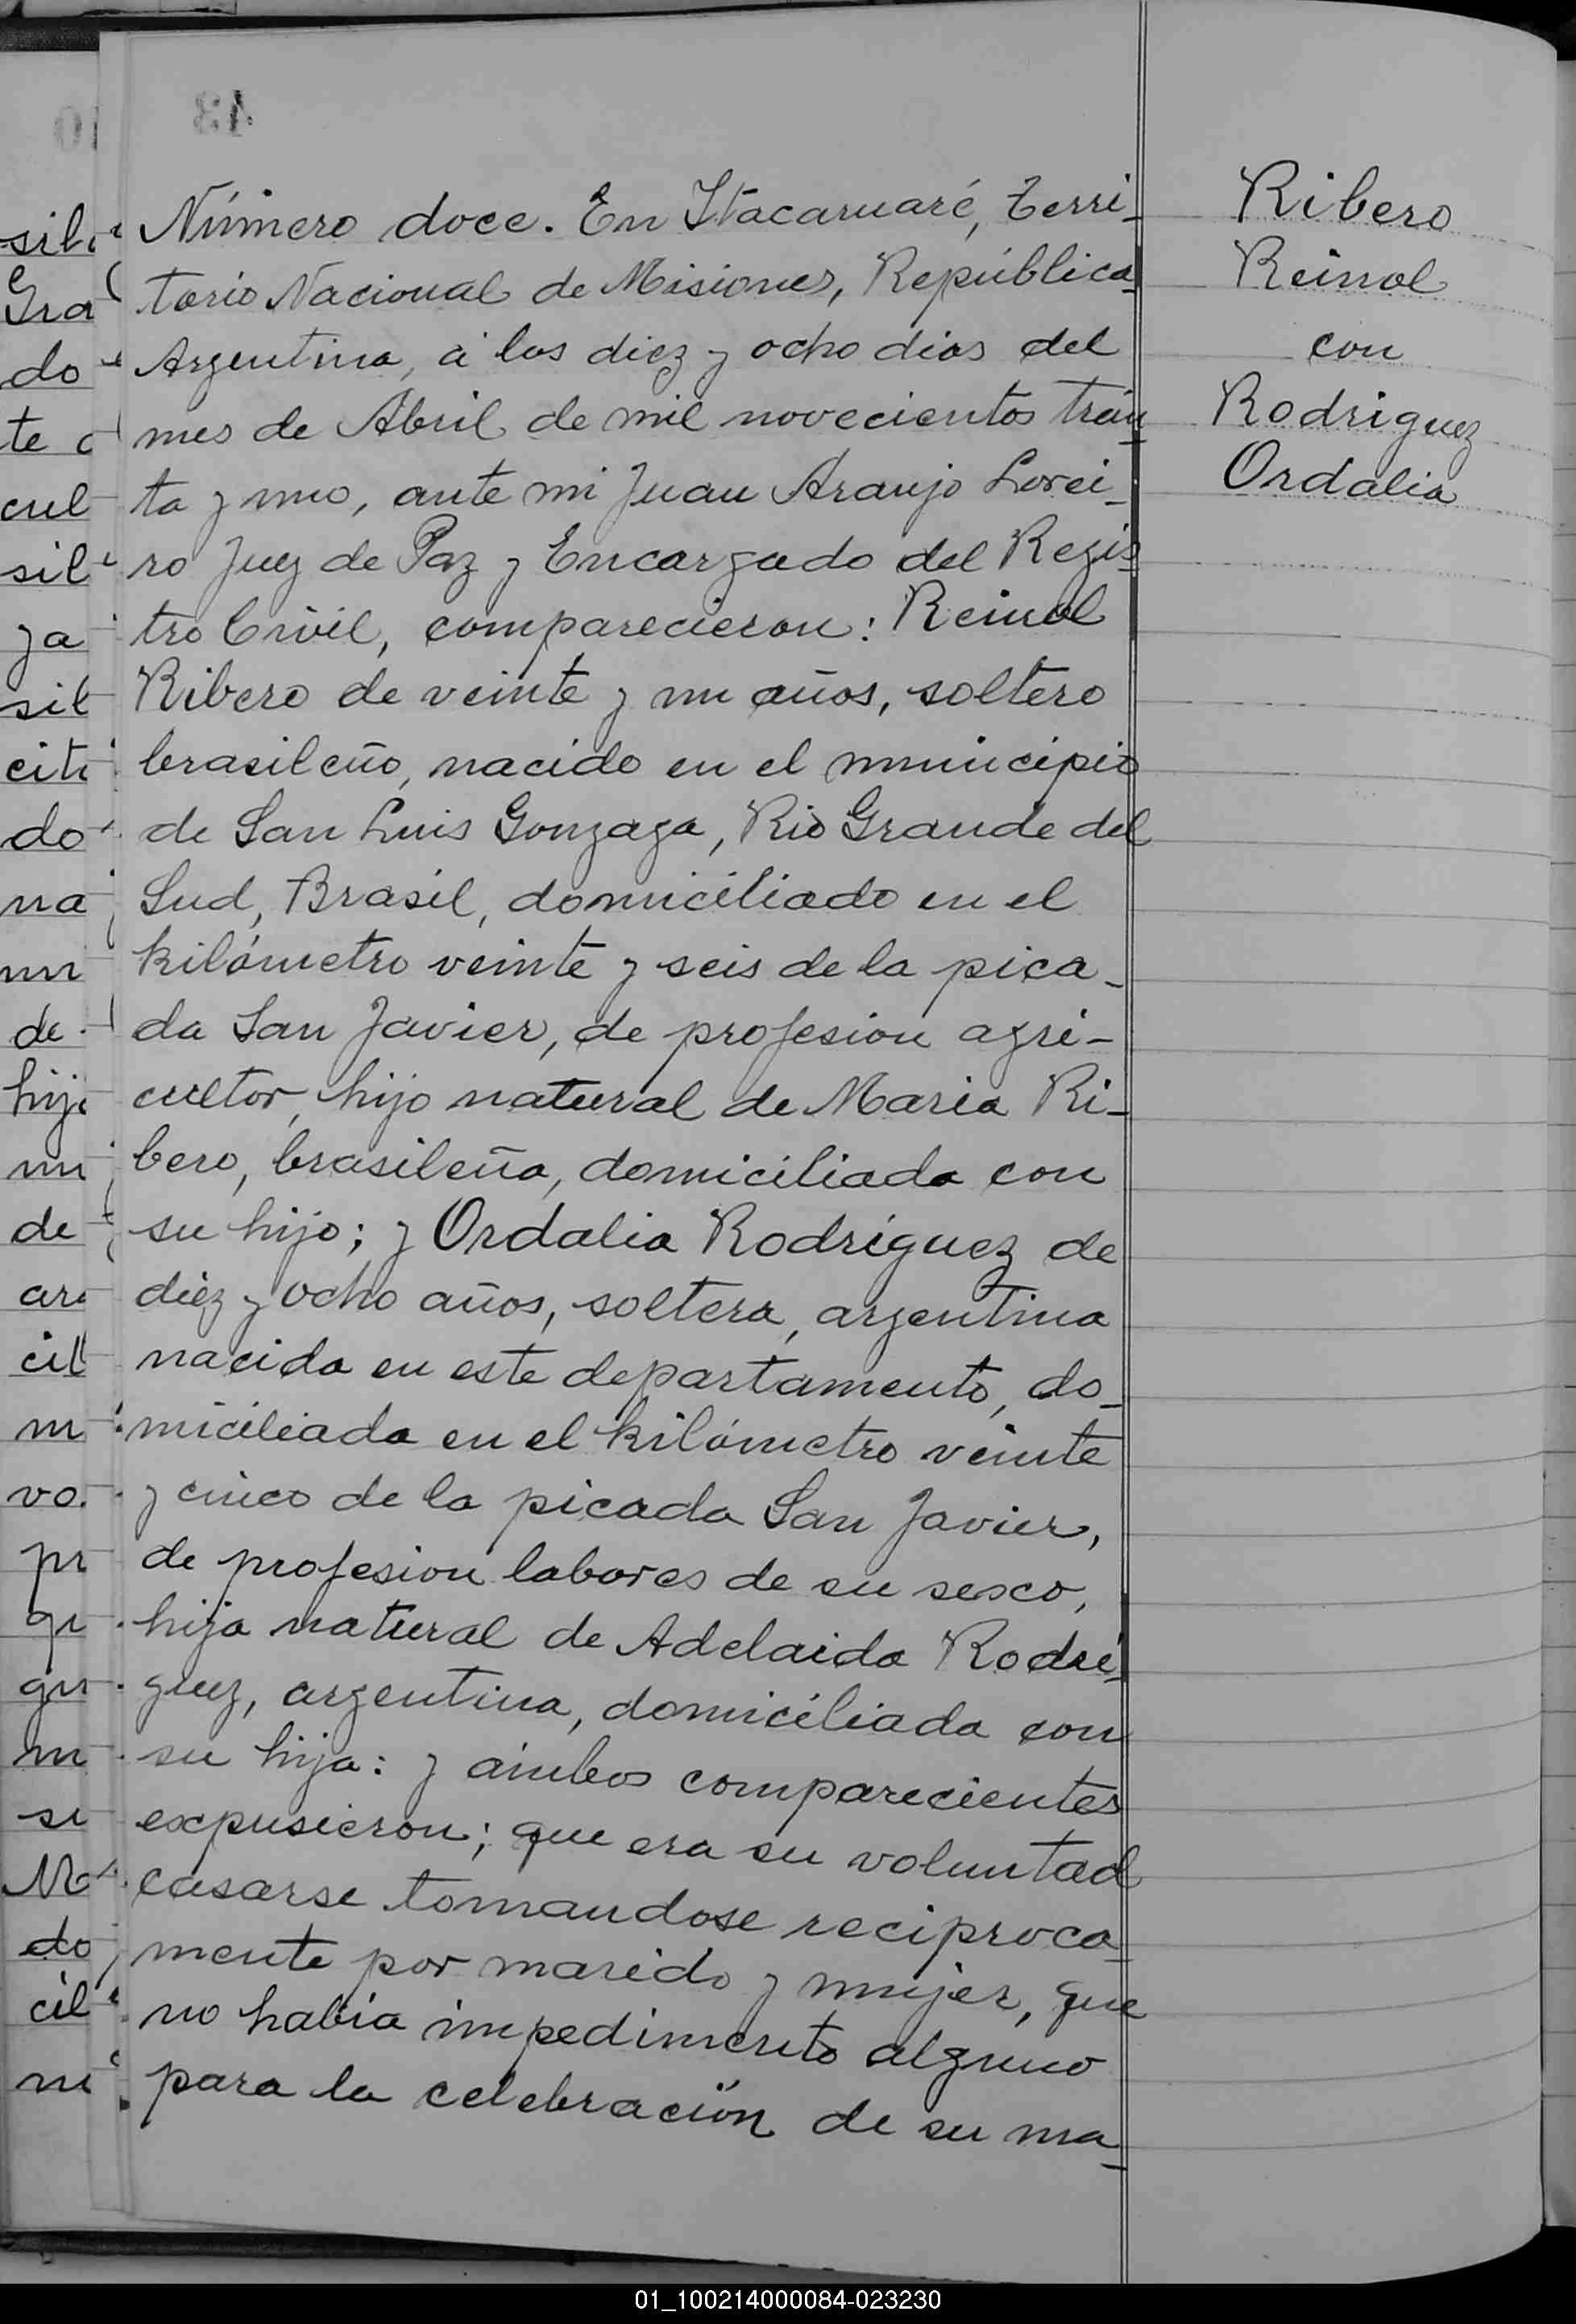 43
Número doce. En Itacaruaré, Terri-
torio Nacional de Misiones, República
Argentina, á los diez y ocho dias del
mes de Abril de mil novecientos trein
ta y uno, ante mi Juan Araujo Lorei-
ro Juez de Paz y Encargado del Regis
tro Civil, comparecieron: Reinol
Ribero de veinte y un años, soltero
brasileño, nacido en el municipio
de San Luis Gonzaga, Rio Grande del
Sud, Brasil, domiciliado en el
kilómetro veinte y seis de la pica-
da San Javier, de profesion agri-
cultor, hijo natural de Maria Ri-
bero, brasileña, domiciliada con
su hijo; y Ordalia Rodriguez de
diez y ocho años, soltera, argentina
nacida en este departamento, do-
miciliada en el kilómetro veinte
y cinco de la picada San Javier,
de profesion labores de su sexo,
hija natural de Adelaida Rodri-
guez, argentina, domiciliada con
su hija: y ámbos comparecientes
expusieron; que era su voluntad
casarse tomandose reciproca-
mente por marido y mujer, que
no habia impedimento alguno
para la celebración de su ma-
Ribero
Reinol
con
Rodriguez
Ordalia
01_100214000084-023230